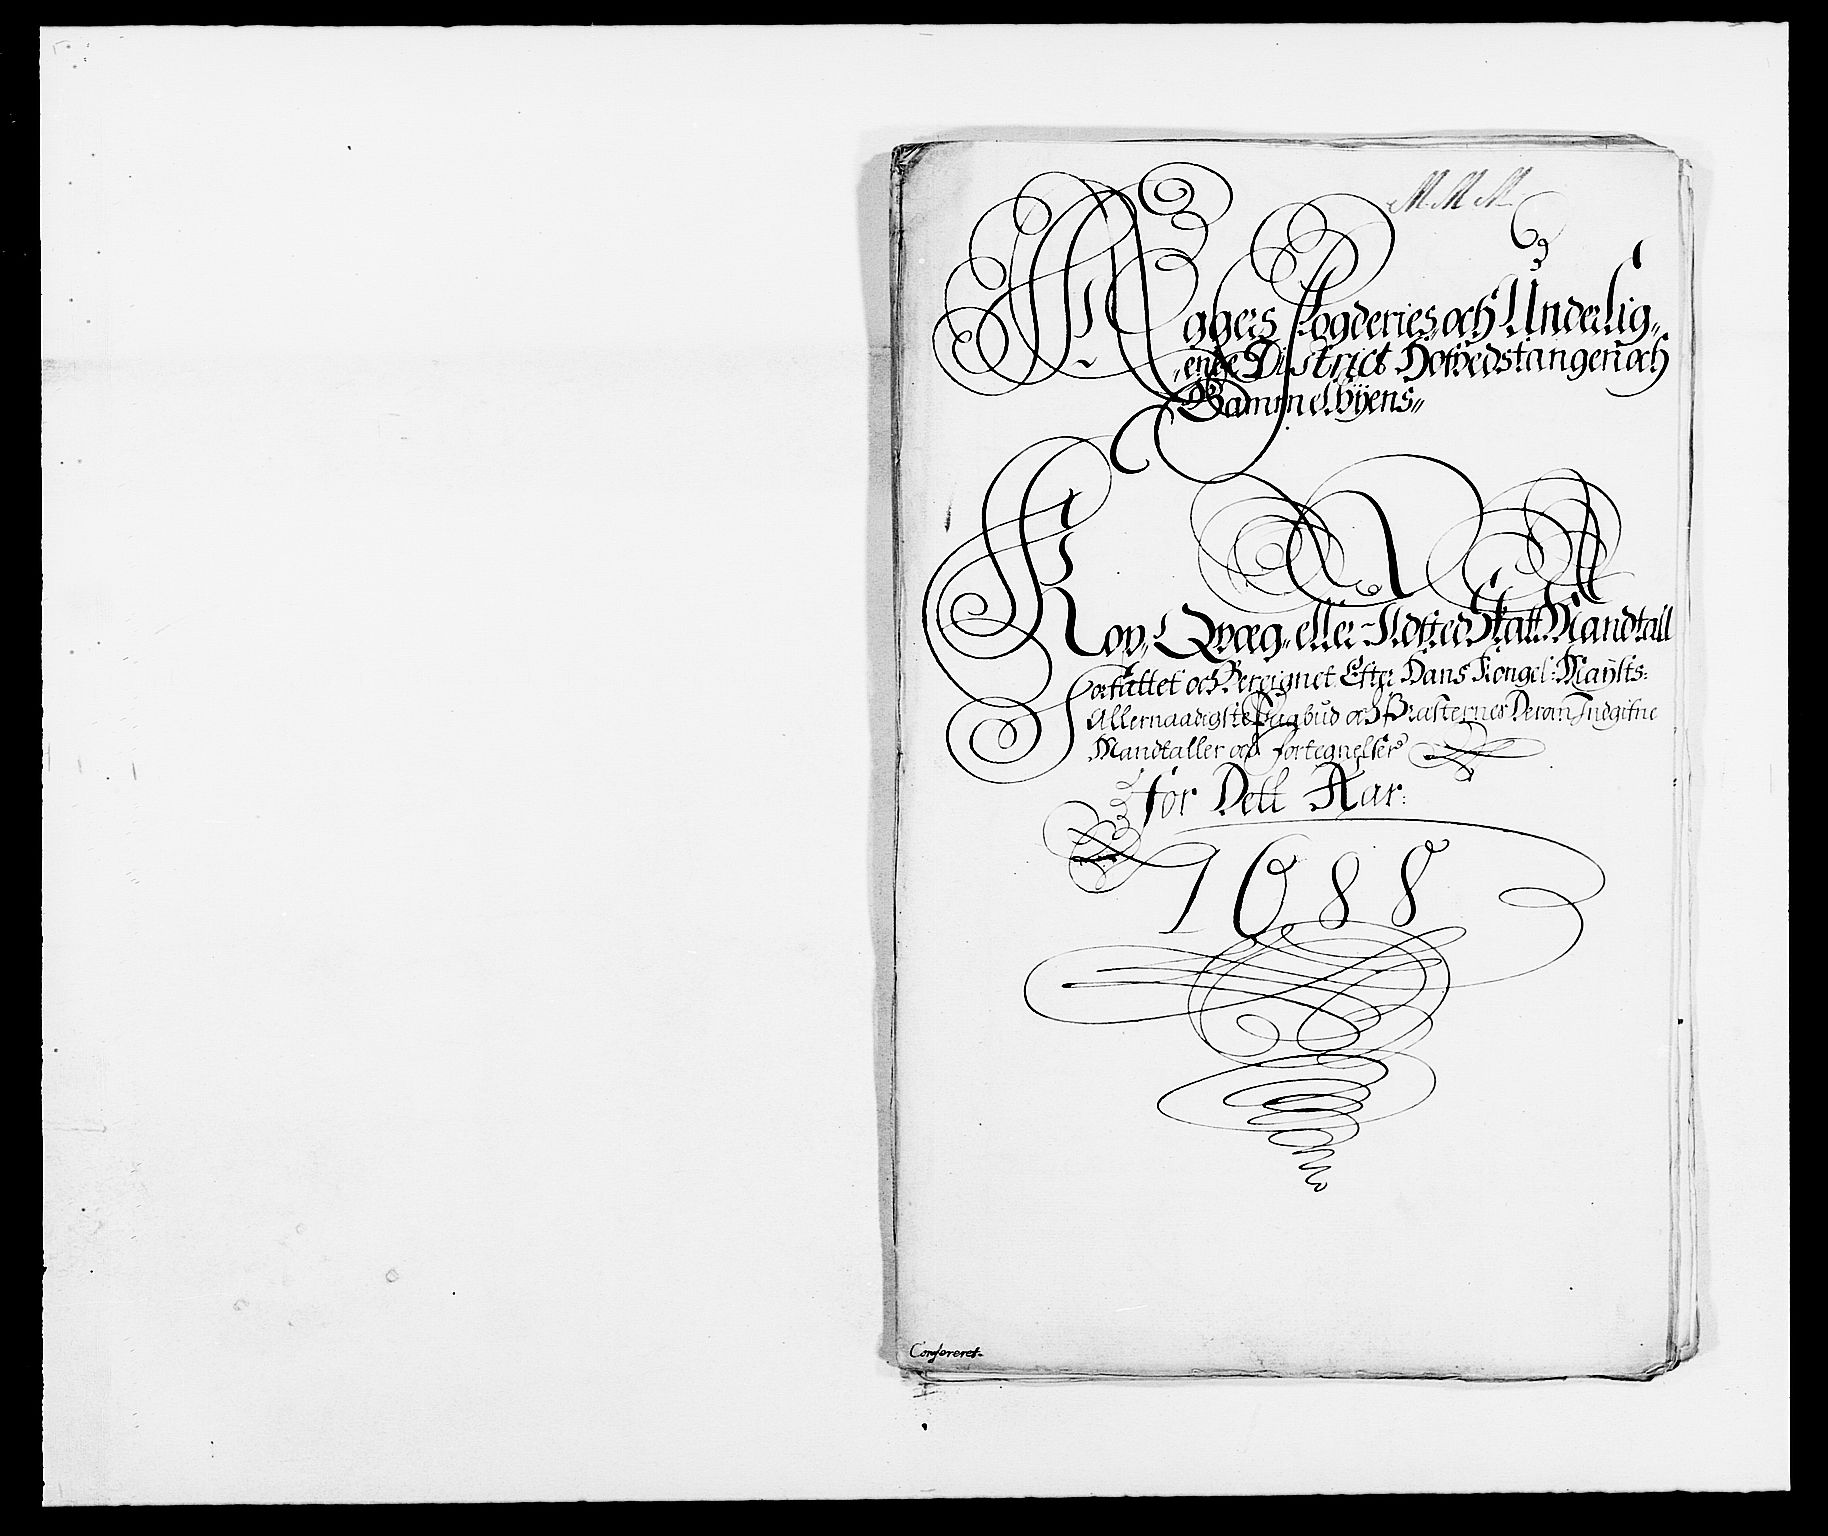 M M M
Aggers Fogderies och Underlig„
„ende District Hofvedstangen och
Gammelbÿens„
Kop„ Qvæg„ eller Ildsted Skatt Mandtall
Forfattet och Beregnet Efter Hans Kongel: Maÿsts:
Allernaadigste Paabud och Præsternes Derom Indgifne
Mandtaller och fortegnelser
for Dett Aar:
1688
Confereret.